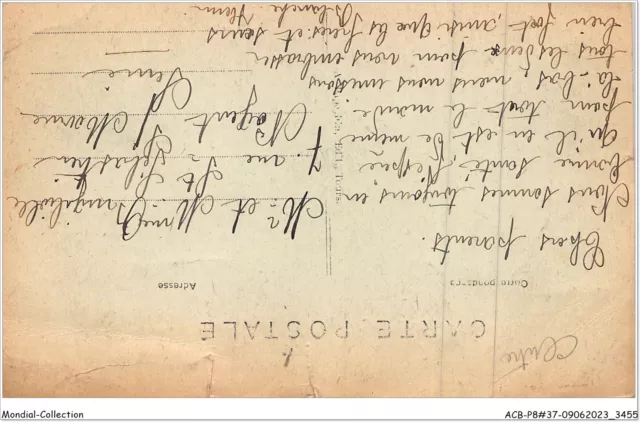 CARTE POSTALE
Correspondance
Adresse
Chers parents.
Nous sommes toujours en
bonne santé, j'espère
qu'il en est de même
pour tout le monde
là-bas, nous nous unissons
tous les deux pour vous embrasser
bien fort, ainsi que les frères et sœurs
Blanche Henri
Mr et Mme
7 rue St Sébastien
Nogent s/ Marne
Seine
Centre
Mondial-Collection
ACB-P8#37-09062023_3455